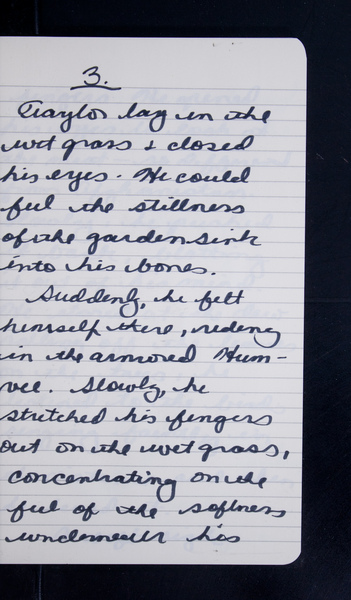 3.
Taylor lay in the
wet grass & closed
his eyes. He could
feel the stillness
of the garden sink
into his bones.
Suddenly, he felt
himself there, riding
in the armored Hum-
vee. Slowly, he
stretched his fingers
out on the wet grass,
concentrating on the
feel of the softness
underneath his